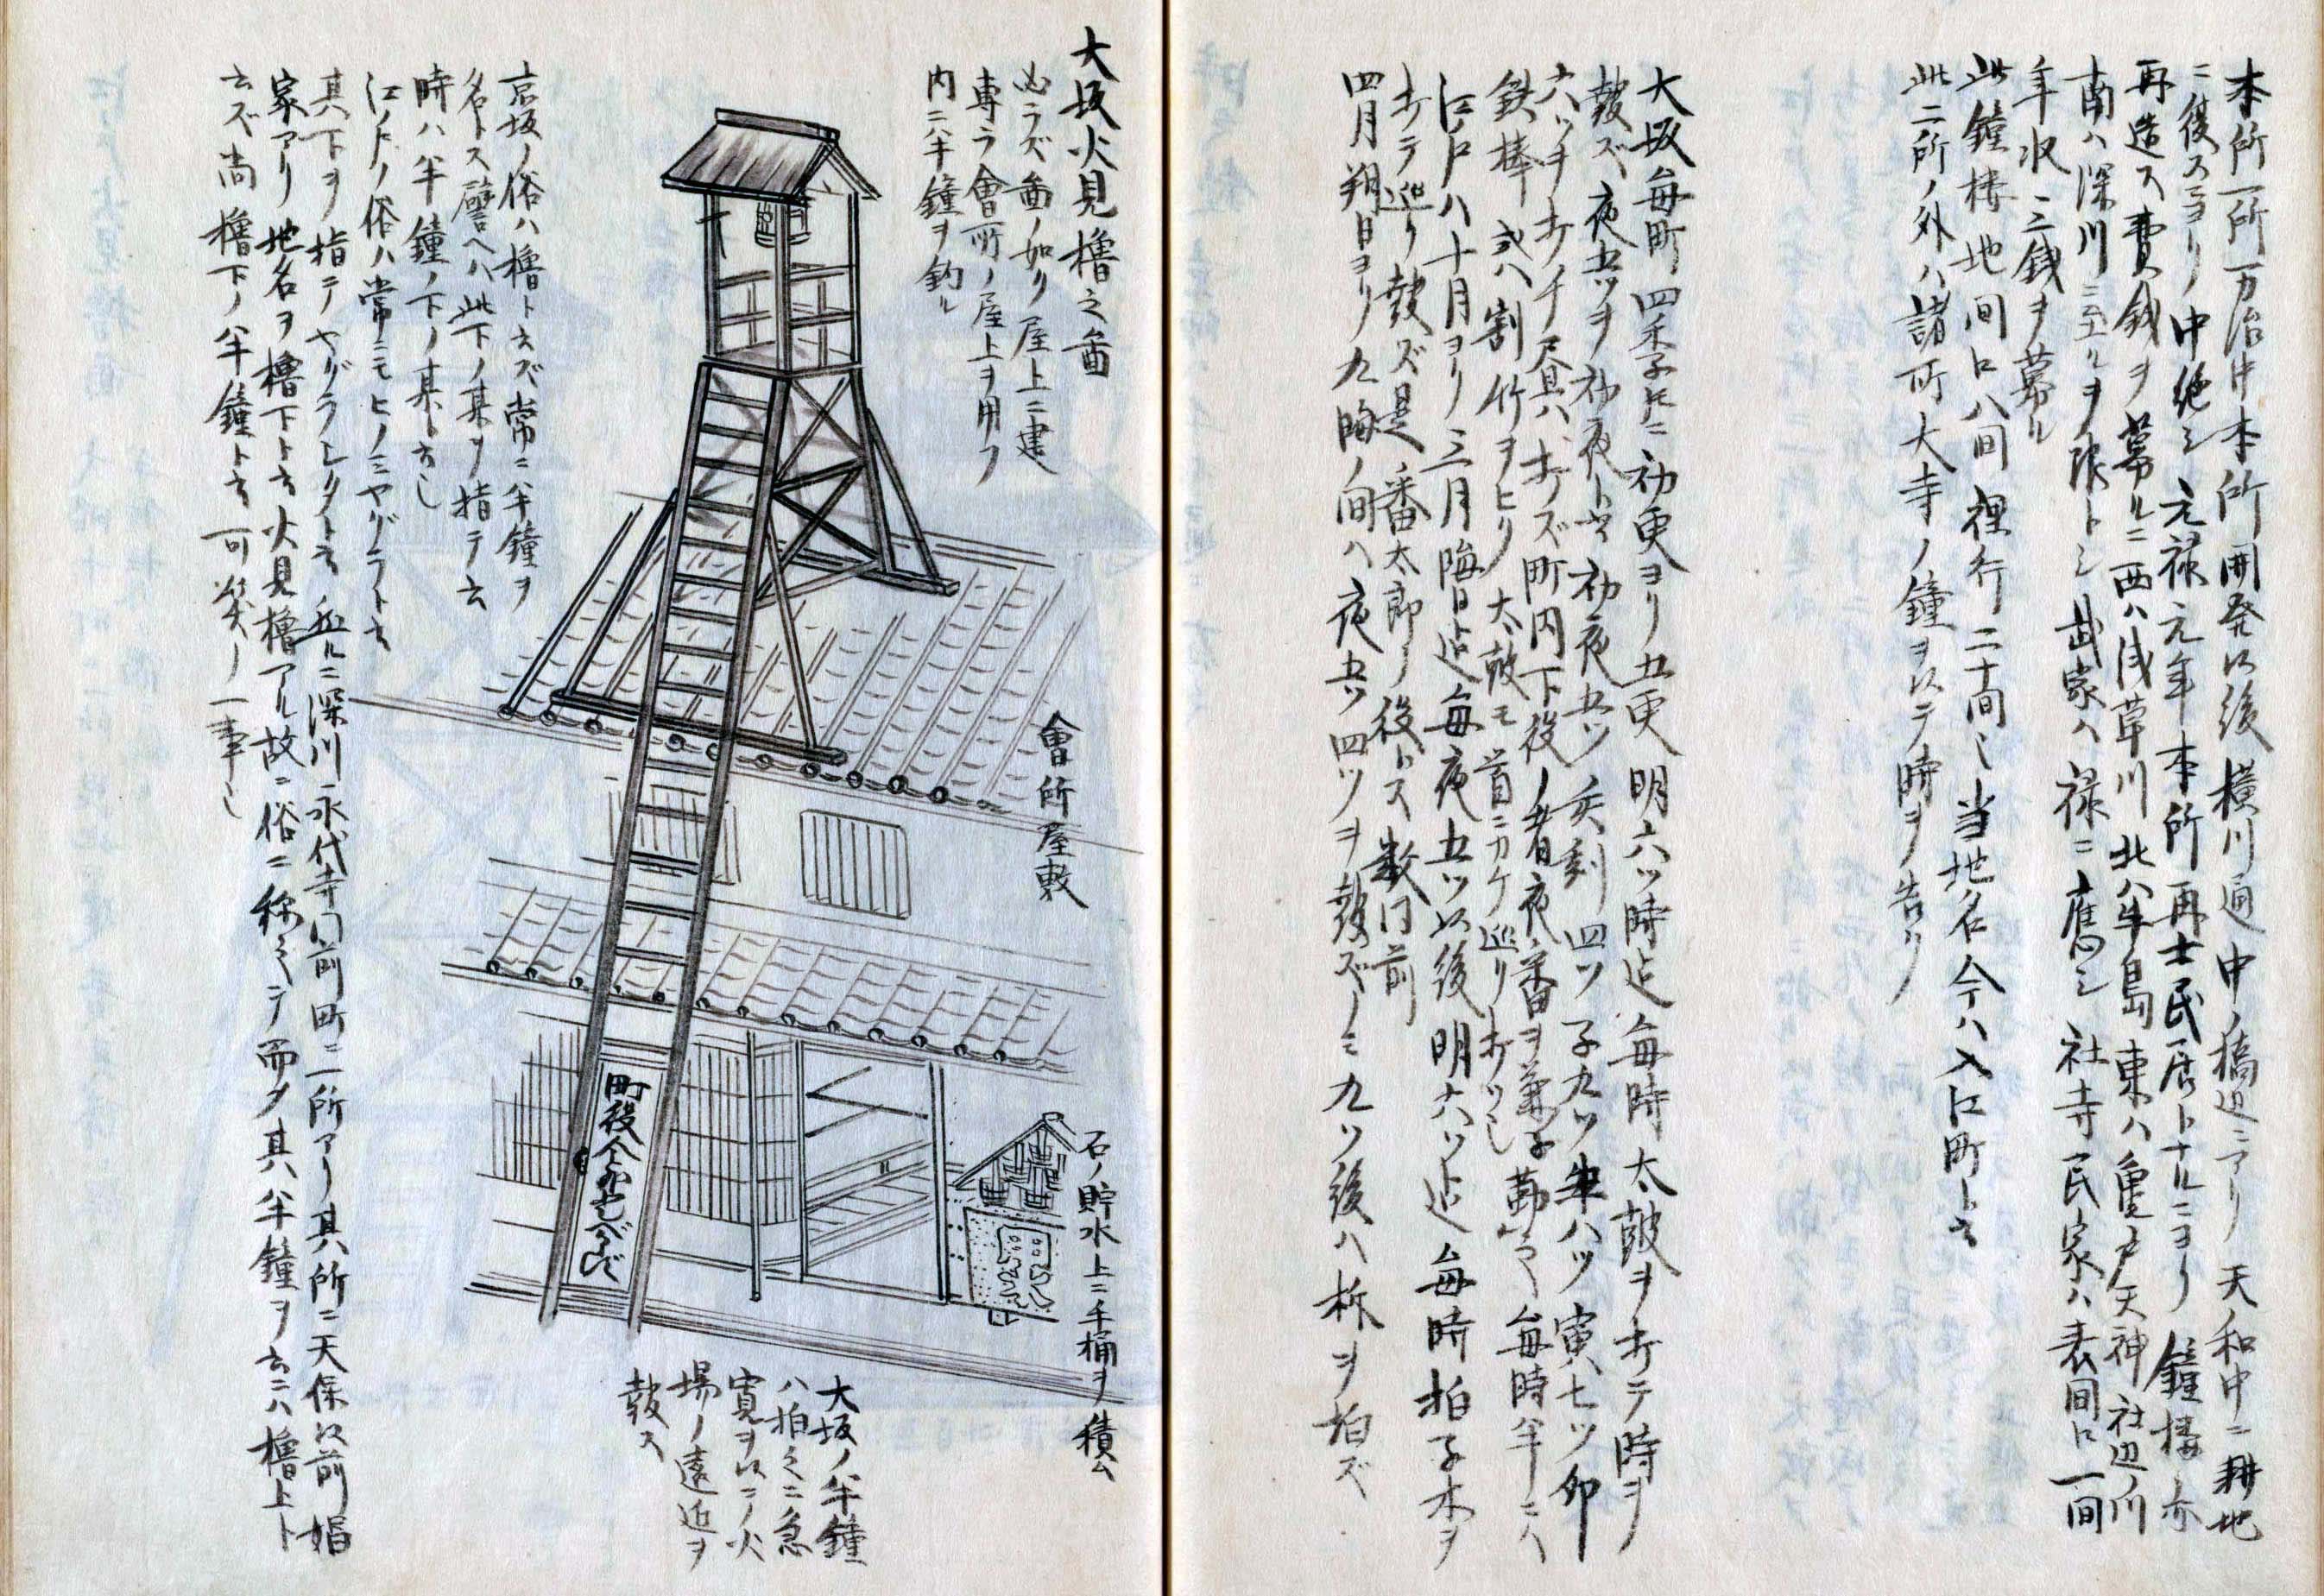 本所一所万治中本所開発以後横川通中ノ橋辺ニアリ天和中ニ耕地
ニ復スニヨリ中絶シ元禄元年本所再士民居トナルニヨリ鐘楼亦
再造ス費銭ヲ募ルニ西ハ浅草川北ハ牛島東ハ亀戸天神社辺ノ川
南ハ深川ニ至ルヲ限トシ武家ハ禄ニ應シ社寺民家ハ表間口一間
年収ニ三銭ヲ募ル
此鐘楼地間口八間裡行二十間也当地名今ハ入江町ト云
此二所ノ外ハ諸所大寺ノ鐘ヲ以テ時ヲ告ク
大坂毎町四季トモニ初更ヨリ五更明六ツ時迄毎時太皷ヲ打テ時ヲ
皷ズ夜五ツヲ初夜ト云初夜五ツ亥刻四ツ子九ツ丑八ツ寅七ツ卯
六ツヲ打ツ昼ハ打ズ町内下役ノ者夜番ヲ兼子勤ム毎時半ニハ
鉄棒或ハ割竹ヲヒク太皷モ首ニカケ巡リ打ツ也
江戸ハ十月ヨリ三月晦日迄毎夜五ツ以後明六ツ迄毎時拍子木ヲ
打テ巡リ皷ズ是番太郎ノ役トス数門前
四月朔日ヨリ九晦ノ間ハ夜五ツ四ツヲ皷ズノミ九ツ後ハ柝ヲ拍ズ
大坂火見櫓之啚
必ラズ啚ノ如ク屋上ニ建
専ラ會所ノ屋上ヲ用フ
内ニハ半鐘ヲ釣ル
京坂ノ俗ハ櫓ト云ズ常ニ半鐘ヲ
名トス譬ヘハ此下ノ某ヲ指テ云
時ハ半鐘ノ下ノ某ト云也
江ノ戸ノ俗ハ常ニモヒノミヤグラト云
其下ヲ指テヤグラシタト云然ルニ深川永代寺門前町ニ一所アリ其所ニ天保以前娼
家アリ地名ヲ櫓下ト云火見櫓アル故ニ俗ニ称之テ而〆其半鐘ヲ云ニハ櫓上ト
云ズ尚櫓下ノ半鐘ト云可笑ノ一事也
會所屋敷
石ノ貯水上ニ手桶ヲ積ム
町役人
大坂ノ半鐘
ハ拍之ニ急
寛ヲ以ニノ火
場ノ遠近ヲ
皷ス